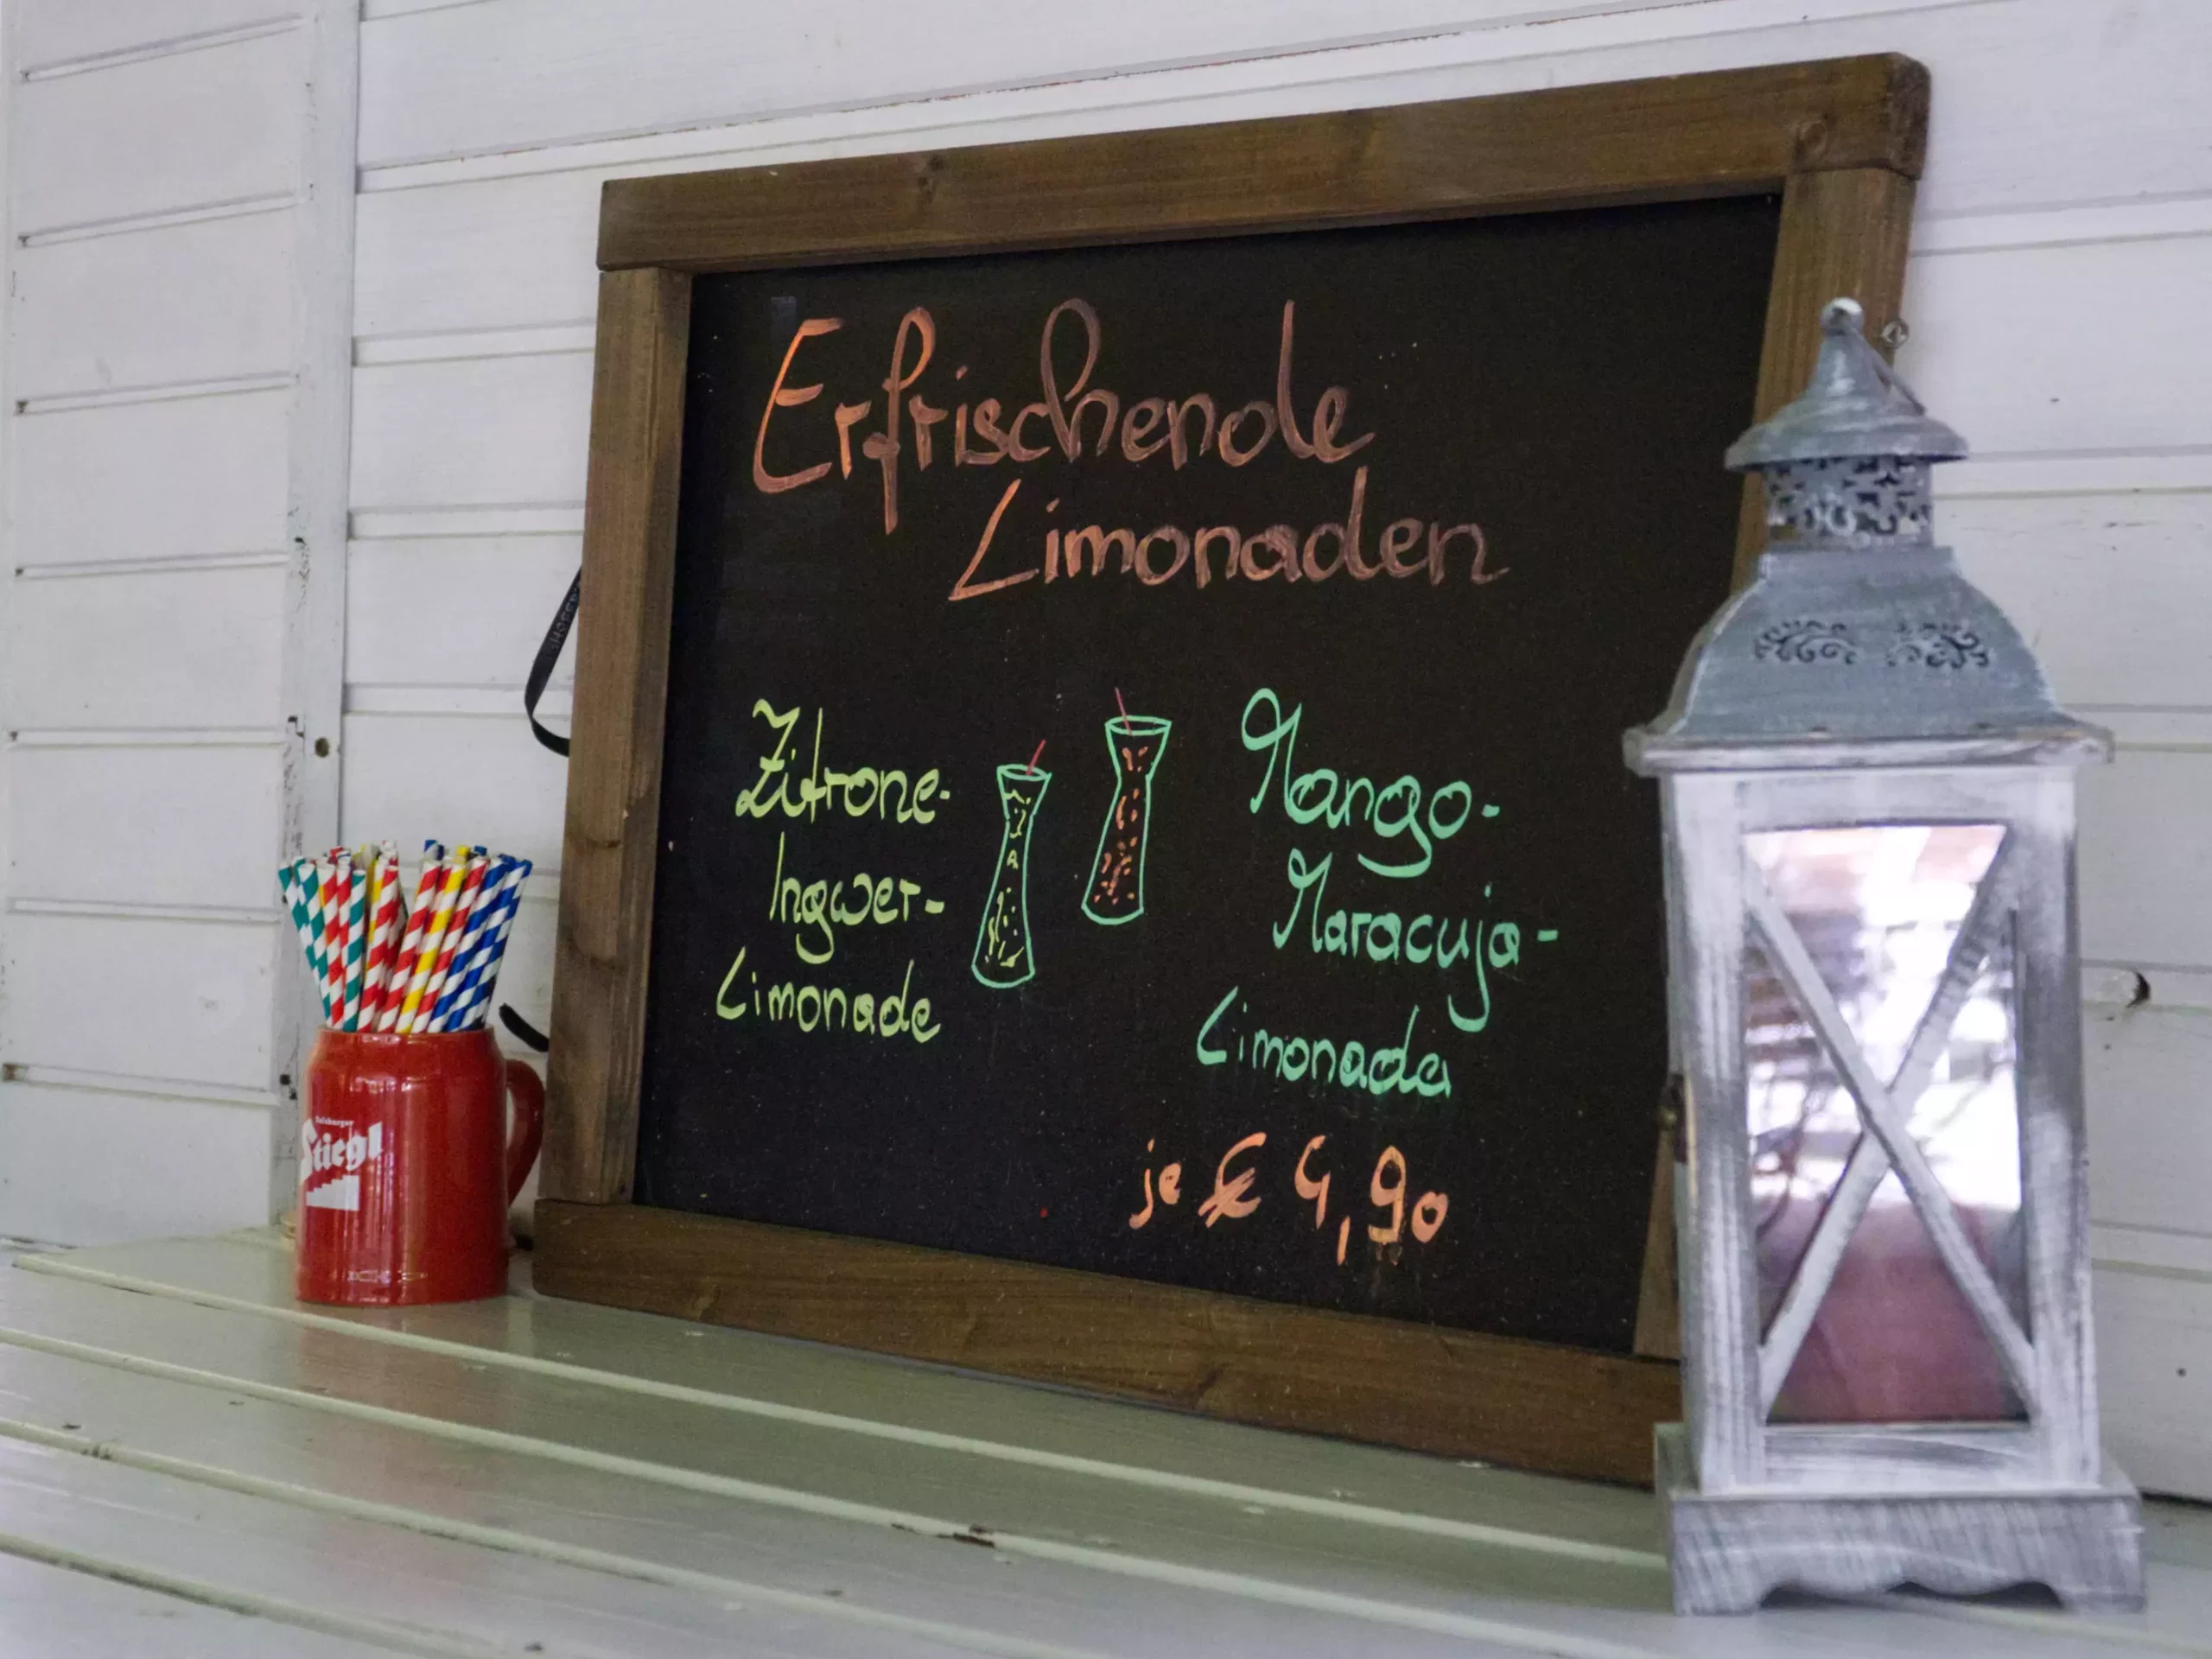 Erfrischende
Limonaden
Zitrone-
Ingwer-
Limonade
Mango-
Maracuja-
Limonade
je € 4,90
Salzburger
Stiegl